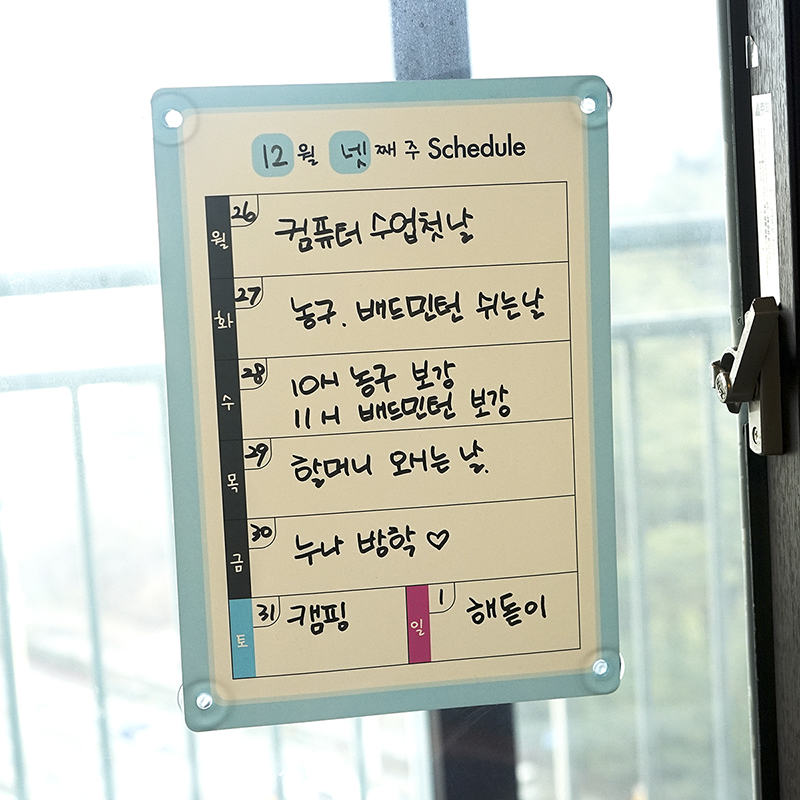 12월 넷째 주 Schedule
월 26 컴퓨터 수업첫날
화 27 농구. 배드민턴 쉬는날
수 28 10H 농구 보강
11H 배드민턴 보강
목 29 할머니 오시는 날.
금 30 누나 방학♡
토 31 캠핑 일 1 해돋이